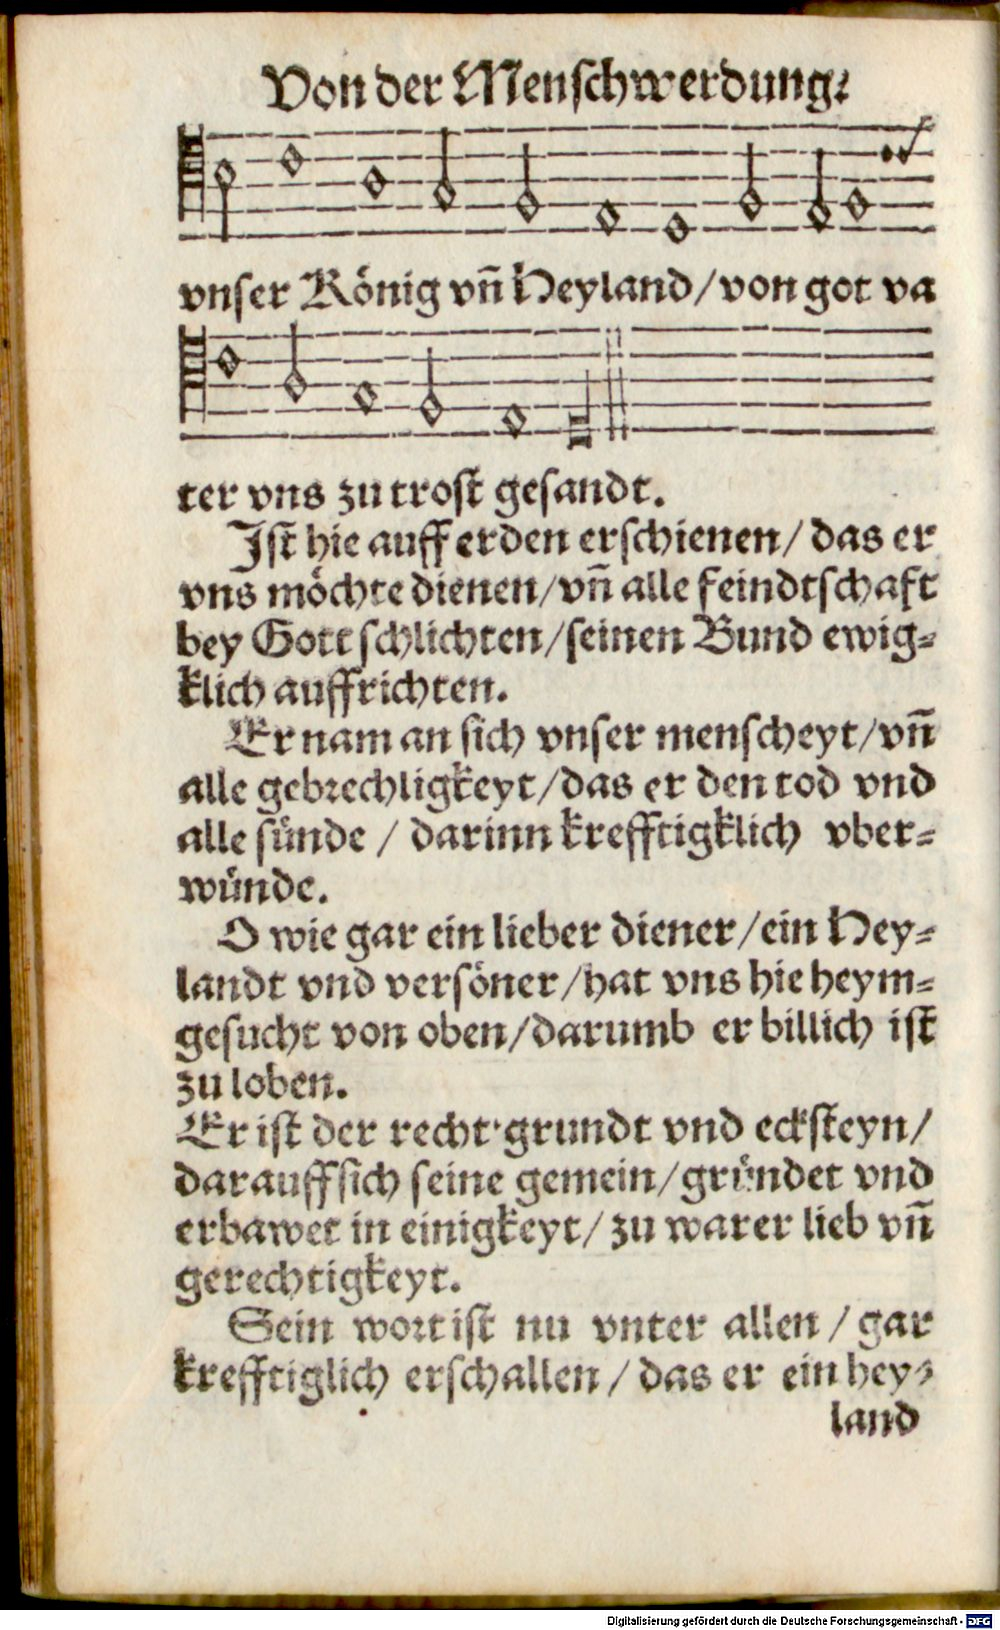 Von der Menschwerdung.
vnser König vñ Heyland/von got va
ter vns zu trost gesandt.
Ist hie auff erden erschienen/ das er
vns möchte dienen/vñ alle feindtschaft
bey Gott schlichten/seinen Bund ewig=
klich auffrichten.
Er nam an sich vnser menscheyt/vñ
alle gebrechligkeyt/das er den tod vnd
alle sünde / darinn krefftigklich vber=
wünde.
O wie gar ein lieber diener/ein Hey=
landt vnd versöner/hat vns hie heym=
gesucht von oben/darumb er billich ist
zu loben.
Er ist der recht grundt vnd ecksteyn/
darauff sich seine gemein/gründet vnd
erbawet in einigkeyt/ zu warer lieb vñ
gerechtigkeyt.
Sein wort ist nu vnter allen / gar
krefftiglich erschallen / das er ein hey=
land
Digitalisierung gefördert durch die Deutsche Forschungsgemeinschaft - DFG